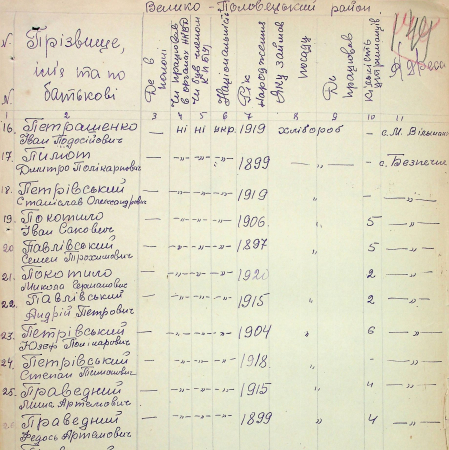 Велико-Половецький район
№ № Прізвище, ім'я та по батькові
Де в полоні
Чи працював в органах НКВД
Чи був членом
Національність
Рік народження
Яку займав посаду
Де працював
Кількість утриманців
Адреса
1 2 3 4 5 6 7 8 9 10 11
16. Петрашенко Іван Тодосійович — ні ні укр. 1919 хлібороб — с. М. Вільшанка
17. Пилют Дмитро Полікарпович — -"- -"- -"- 1899 — „ — - с. Безпечне
18. Петрівський Станіслав Олександрович — -"- -"- -"- 1919 „ - —"—
19. Покотило Іван Савович — -"- -"- -"- 1906 „ 5 —"—
20. Павлівський Семен Трохимович — -"- -"- -"- 1897 „ 5 —"—
21. Покотило Микола Германович — -"- -"- -"- 1920 „ 2 —"—
22. Павлівський Андрій Петрович — -"- -"- -"- 1915 „ 2 —"—
23. Петрівський Юзеф Полікарпович — -"- -"- -"- 1904 „ 6 —"—
24. Петрівський Степан Тимошович — -"- -"- -"- 1918 „ - —"—
25. Праведний Лишс Артемович — -"- -"- -"- 1915 „ 4 —"—
Праведний Федось Артемович — -"- -"- -"- 1899 „ 4 —"—